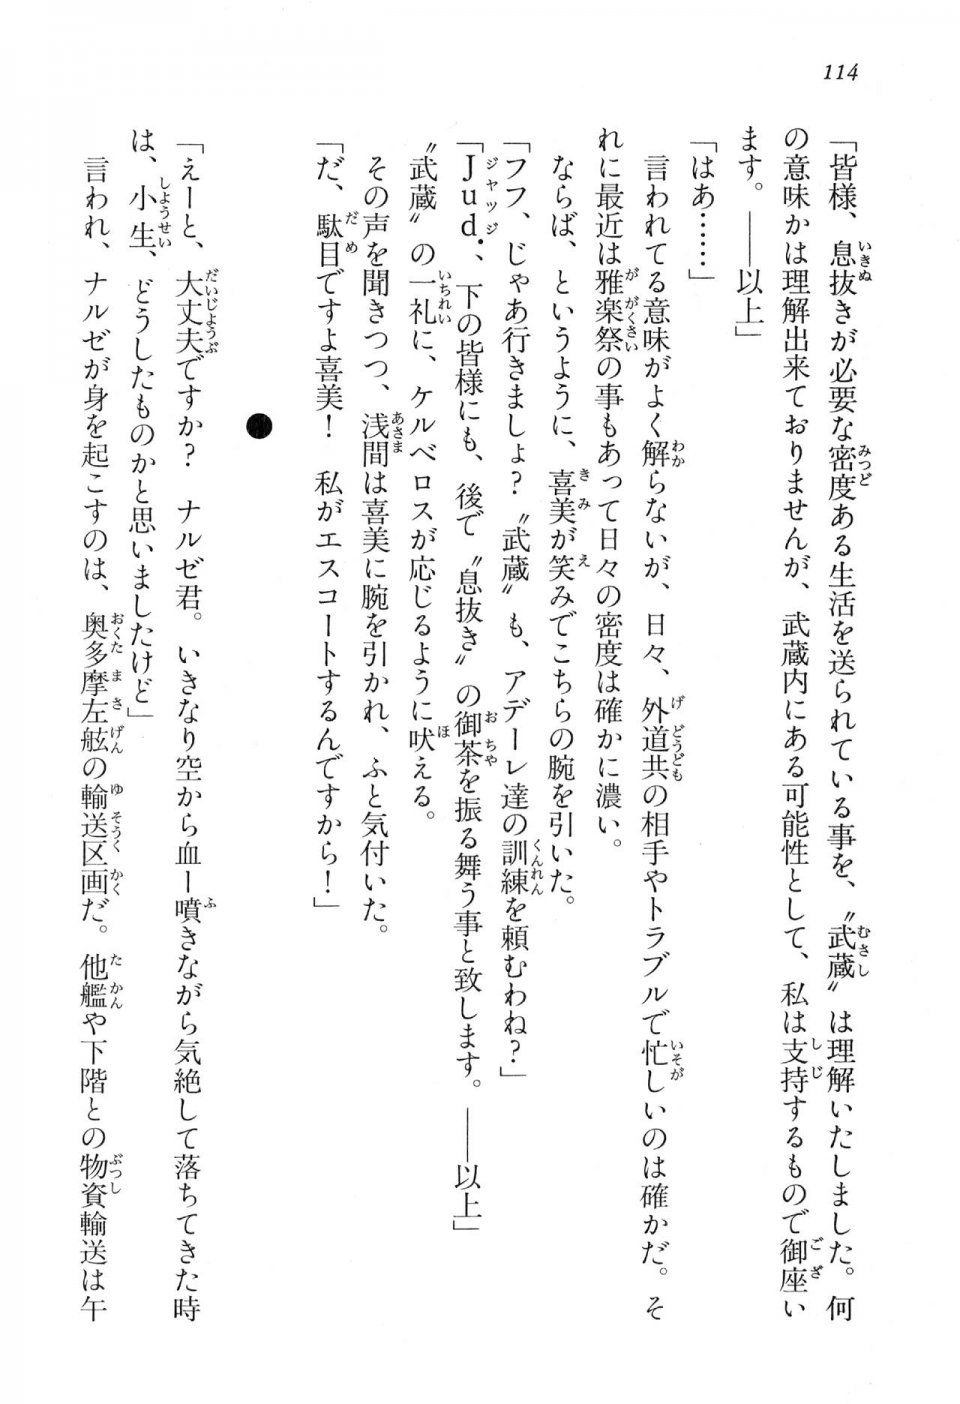 114
「皆様、息抜きが必要な密度ある生活を送られている事を、〝武蔵〟は理解いたしました。何
の意味かは理解出来ておりませんが、武蔵内にある可能性として、私は支持するもので御座い
ます。――以上」
「はあ……」
　言われてる意味がよく解らないが、日々、外道共の相手やトラブルで忙しいのは確かだ。そ
れに最近は雅楽祭の事もあって日々の密度は確かに濃い。
　ならば、というように、喜美が笑みでこちらの腕を引いた。
「フフ、じゃあ行きましょ？〝武蔵〟も、アデーレ達の訓練を頼むわね？」
「Jud.、下の皆様にも、後で〝息抜き〟の御茶を振る舞う事と致します。――以上」
〝武蔵〟の一礼に、ケルベロスが応じるように吠える。
　その声を聞きつつ、浅間は喜美に腕を引かれ、ふと気付いた。
「だ、駄目ですよ喜美！　私がエスコートするんですから！」
●
「えーと、大丈夫ですか？　ナルゼ君。いきなり空から血ー噴きながら気絶して落ちてきた時
は、小生、どうしたものかと思いましたけど」
　言われ、ナルゼが身を起こすのは、奥多摩左舷の輸送区画だ。他艦や下階との物資輸送は午